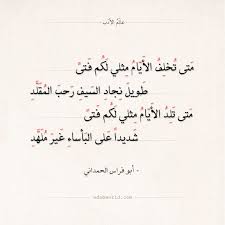 عالم الأدب
مَتى تُخلِفُ الأَيّامُ مِثلي لَكُم فَتىً
طَويلَ نِجادِ السَيفِ رَحبَ المُقَلَّدِ
مَتى تَلِدُ الأَيّامُ مِثلي لَكُم فَتىً
شَديداً عَلى البَأساءِ غَيرَ مُلَهَّدِ
- أبو فراس الحمداني
adabworld.com